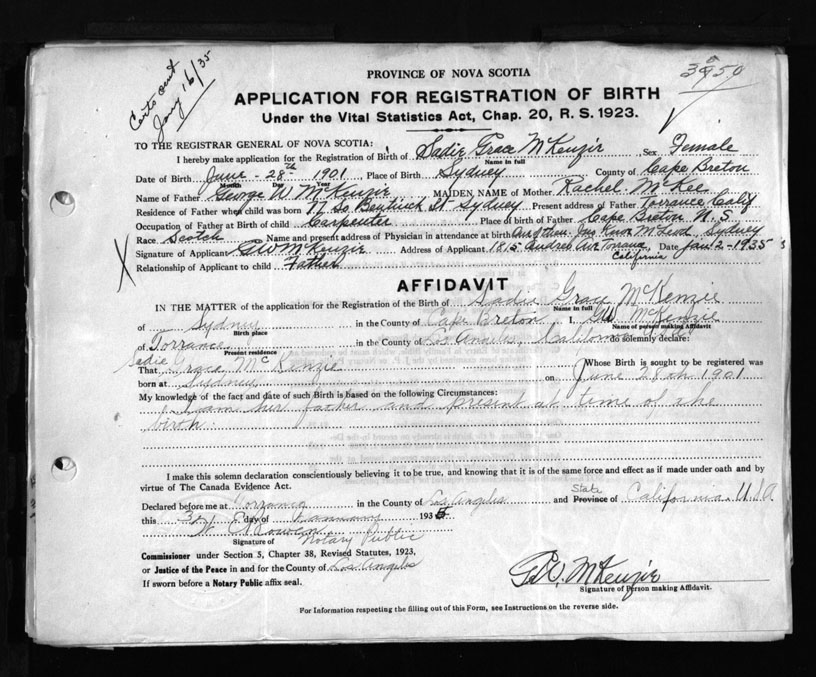 Certs sent
Jany 16/35
3950
PROVINCE OF NOVA SCOTIA
APPLICATION FOR REGISTRATION OF BIRTH
Under the Vital Statistics Act, Chap. 20, R. S. 1923.
TO THE REGISTRAR GENERAL OF NOVA SCOTIA:
I hereby make application for the Registration of Birth of Sadie Grace McKenzie, Sex Female
Name in full
Date of Birth June - 28th 1901 Place of Birth Sydney County of Cape Breton
Month Day Year
Name of Father George W McKenzie MAIDEN NAME of Mother Rachel McKee
Residence of Father when child was born 17 So Bentinck St Sydney Present address of Father Torrance, Calif
Occupation of Father at Birth of child Carpenter Place of birth of Father Cape Breton N. S
Race Scotch Name and present address of Physician in attendance at birth McLeod Sydney
Signature of Applicant G W McKenzie Address of Applicant 1815 Andreo Ave Torrance, Date Jan 2 - 1935
California
Relationship of Applicant to child Father
AFFIDAVIT
IN THE MATTER of the application for the Registration of the Birth of Sadie Grace McKenzie
Name in full
of Sydney in the County of Cape Breton I, GW McKenzie
Birth place Name of person making Affidavit
of Torrance in the County of Los Angeles, do solemnly declare:
Present residence
Sadie
That Grace McKenzie Whose Birth is sought to be registered was
born at Sydney on June 28th 1901
My knowledge of the fact and date of such Birth is based on the following Circumstances:
I am her father and present at time of the
birth.
I make this solemn declaration conscientiously believing it to be true, and knowing that it is of the same force and effect as if made under oath and by
virtue of The Canada Evidence Act.
Declared before me at Torrance in the County of Los Angeles and Province of California U.S.A
State
this day of January 1935
Signature of Notary Public
Commissioner under Section 5, Chapter 38, Revised Statutes, 1923,
or Justice of the Peace in and for the County of Los Angeles
If sworn before a Notary Public affix seal.
G.W. McKenzie
Signature of Person making Affidavit.
For Information respecting the filling out of this Form, see Instructions on the reverse side.